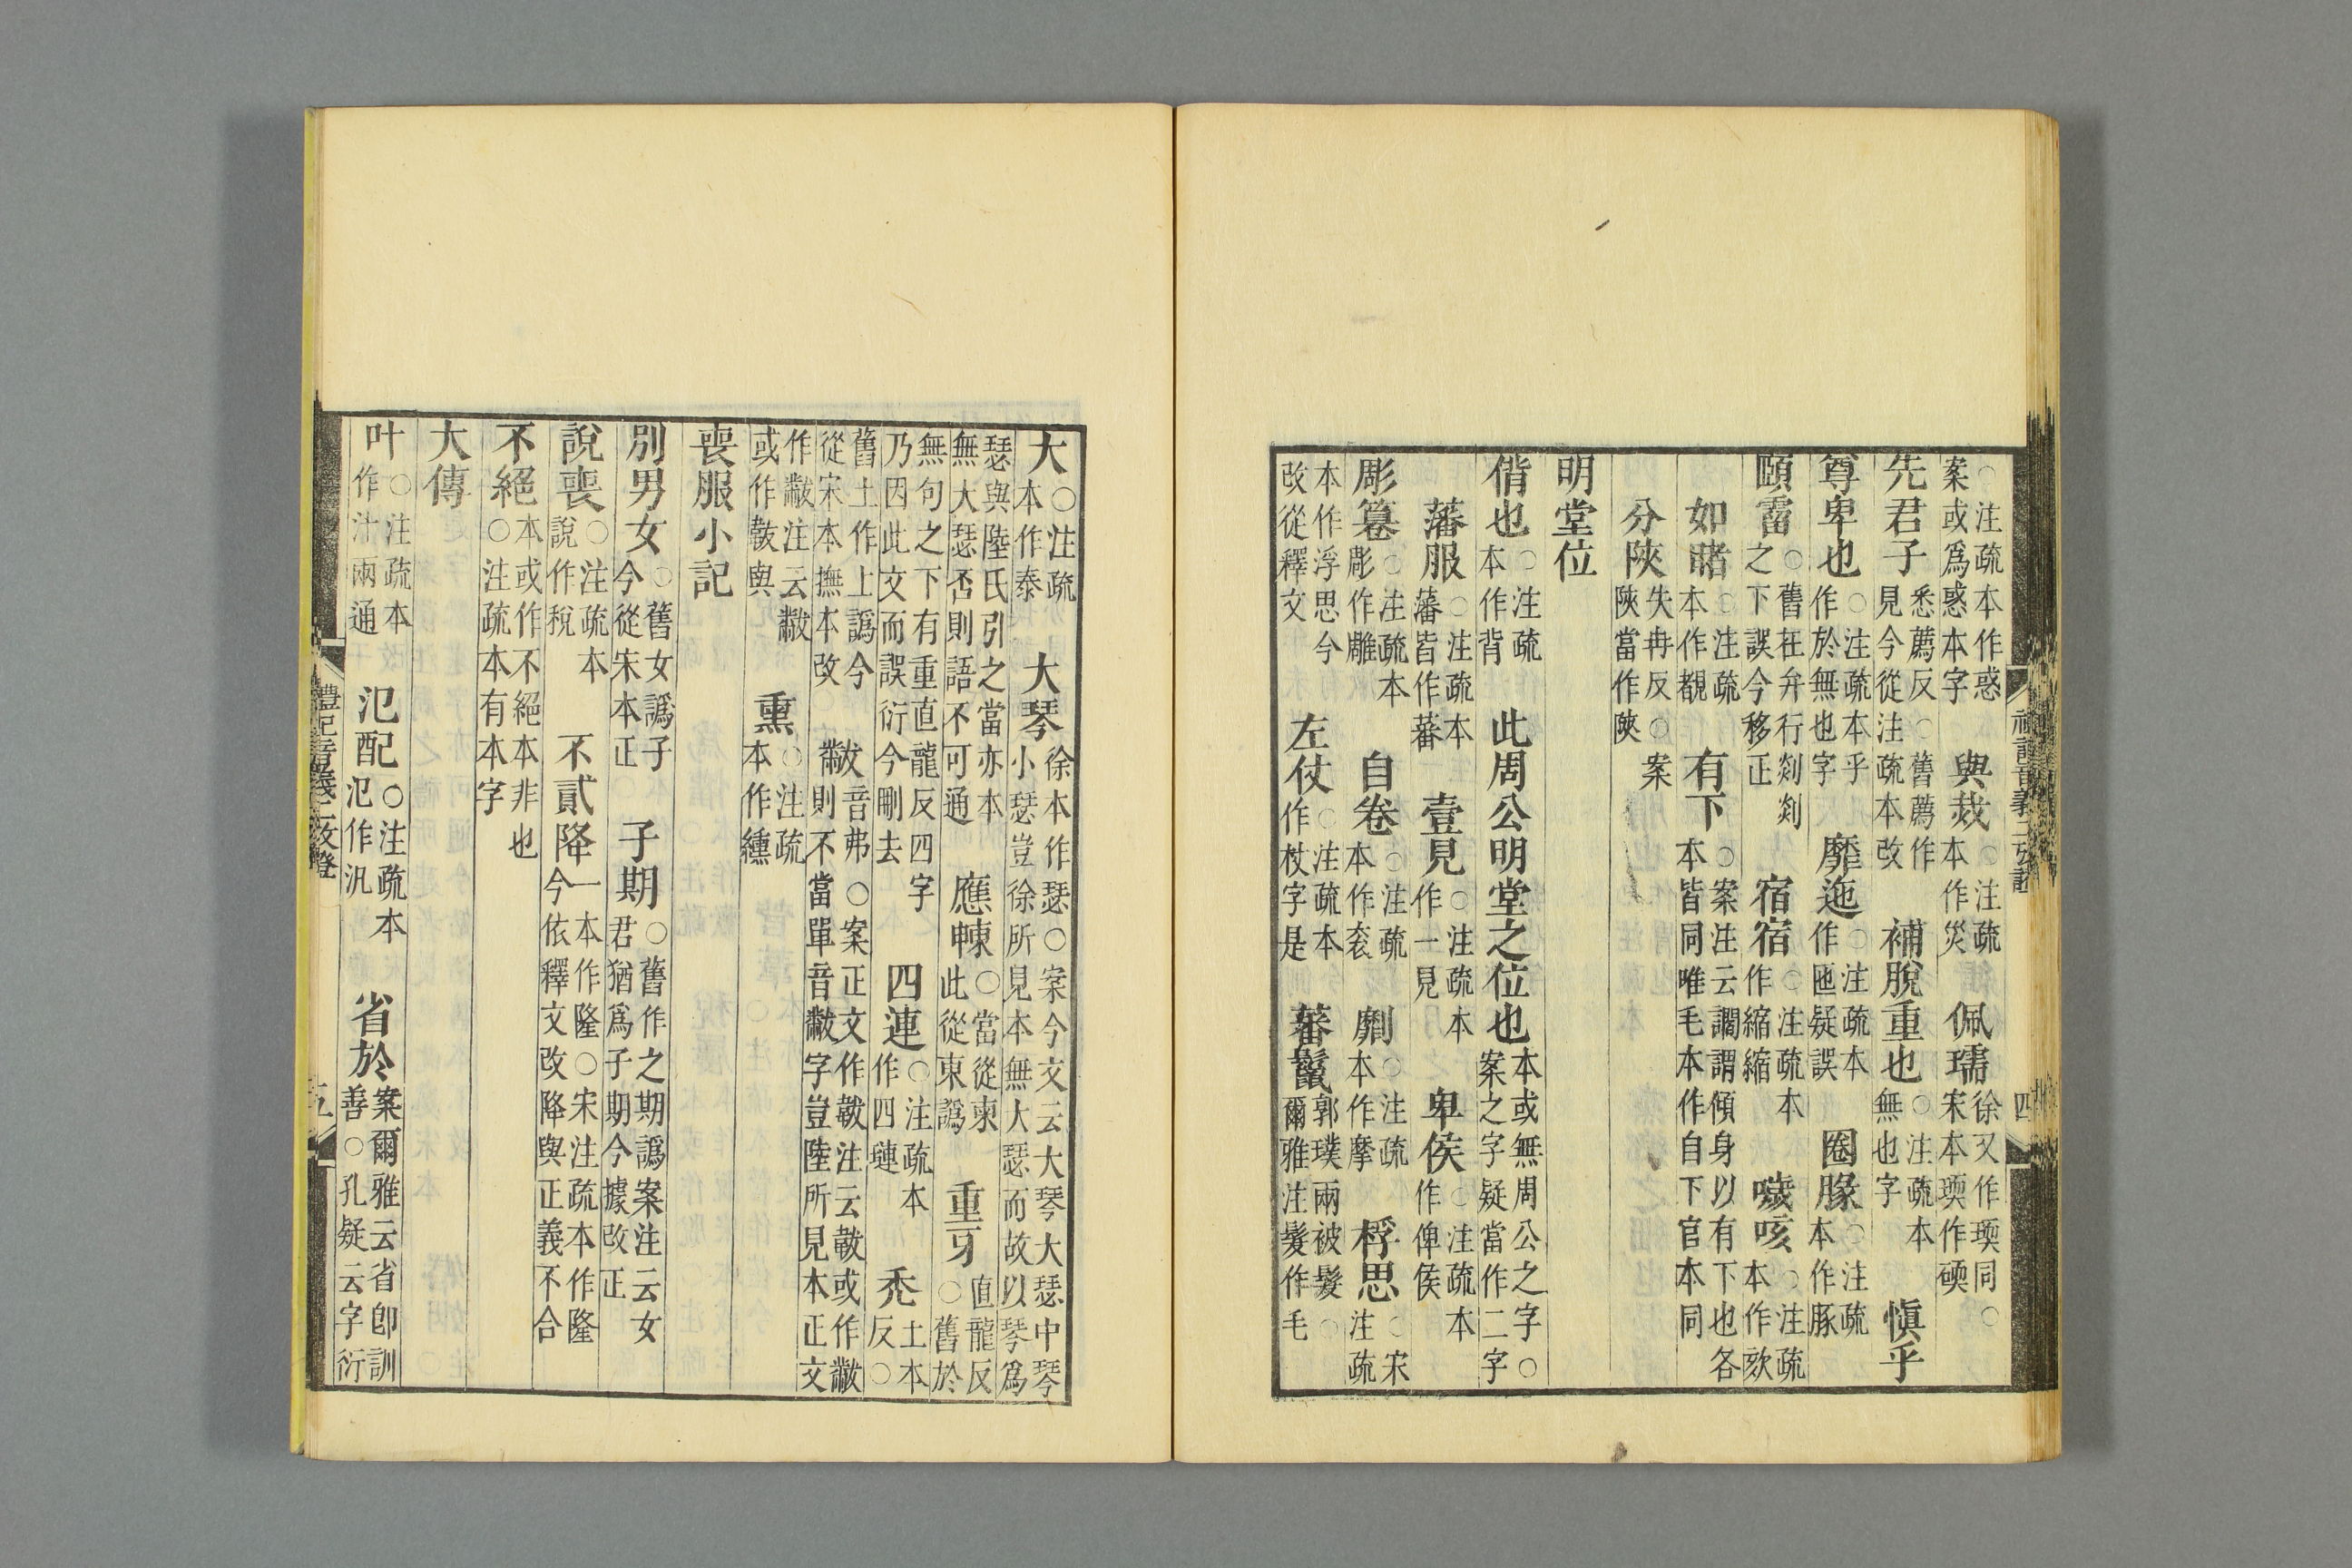 ○注疏本作惑案或爲惑本字 與烖○注疏本作災 佩瓀徐又作瑌同○宋本瑌作碝
先君子悉薦反○舊薦作見今從注疏本改 補脫重也○注疏本無也字 愼乎
尊卑也○注疏本乎作於無也字 靡迤○注疏本作匜疑誤 圈豚○注疏本作豚
頤霤○舊在弁行剡剡之下誤今移正 宿宿○注疏本作縮縮 噦咳○注疏本作欬
如睹○注疏本作覩 有下○案注云讇謂傾身以有下也各本皆同唯毛本作自下官本同
分陝失冉反○案陝當作陜
明堂位
偝也○注疏本作背 此周公明堂之位也本或無周公之字○案之字疑當作二字
蕃服○注疏本蕃皆作蕃 壹見○注疏本作一見 卑侯○注疏本作俾侯
彫篹○注疏本彫作雕 自卷○注疏本作袞 劘○注疏本作摩 桴思○宋注疏
本作浮思今改從釋文 左仗○注疏本作杖字是 蕃鬣郭璞兩被髮○爾雅注髮作毛
禮記音義二攷證
四
大○注疏本作泰 大琴徐本作瑟○案今文云大琴大瑟中琴小瑟豈徐所見本無大瑟而故以琴爲
瑟與陸氏引之當亦本無大瑟否則語不可通 應朄○當從柬此從東譌 重牙直龍反○舊於
無句之下有重直龍反四字乃因此文而誤衍今刪去 四連○注疏本作四璉 禿土本反○
舊土作上譌今從宋本撫本改 韍音弗○案正文作韍注云韍或作黻黻則不當單音黻字豈陸所見本正文
作黻注云黻或作韍與 熏○注疏本作纁
喪服小記
別男女○舊女譌子今從宋本正 子期○舊作之期譌案注云女君猶爲子期今據改正
說喪○注疏本說作稅 不貳降一本作隆○宋注疏本作隆今依釋文改降與正義不合
不絕本或作不絕本非也○注疏本有本字
大傳
叶○注疏本作汁兩通 氾配○注疏本氾作汎 省於案爾雅云省卽訓善○孔疑云字衍
禮記音義二攷證
五